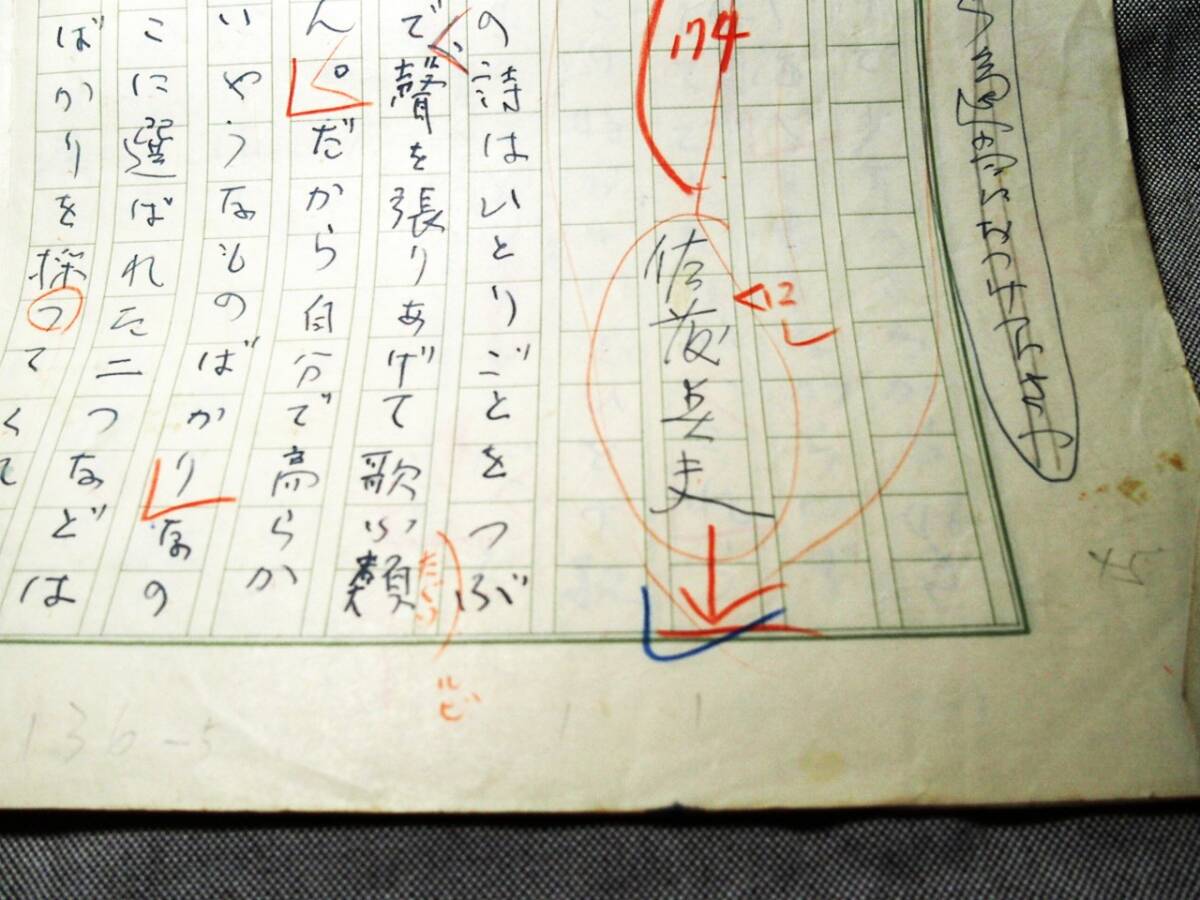 174
佐藤春夫
12
の詩はいとりごとをつぶ
で聲を張りあげて歌ふ類
ルビ
ん。だから自分で高らか
いやうなものばかりなの
こに選ばれた二つなどは
ばかりを採つて
136-5